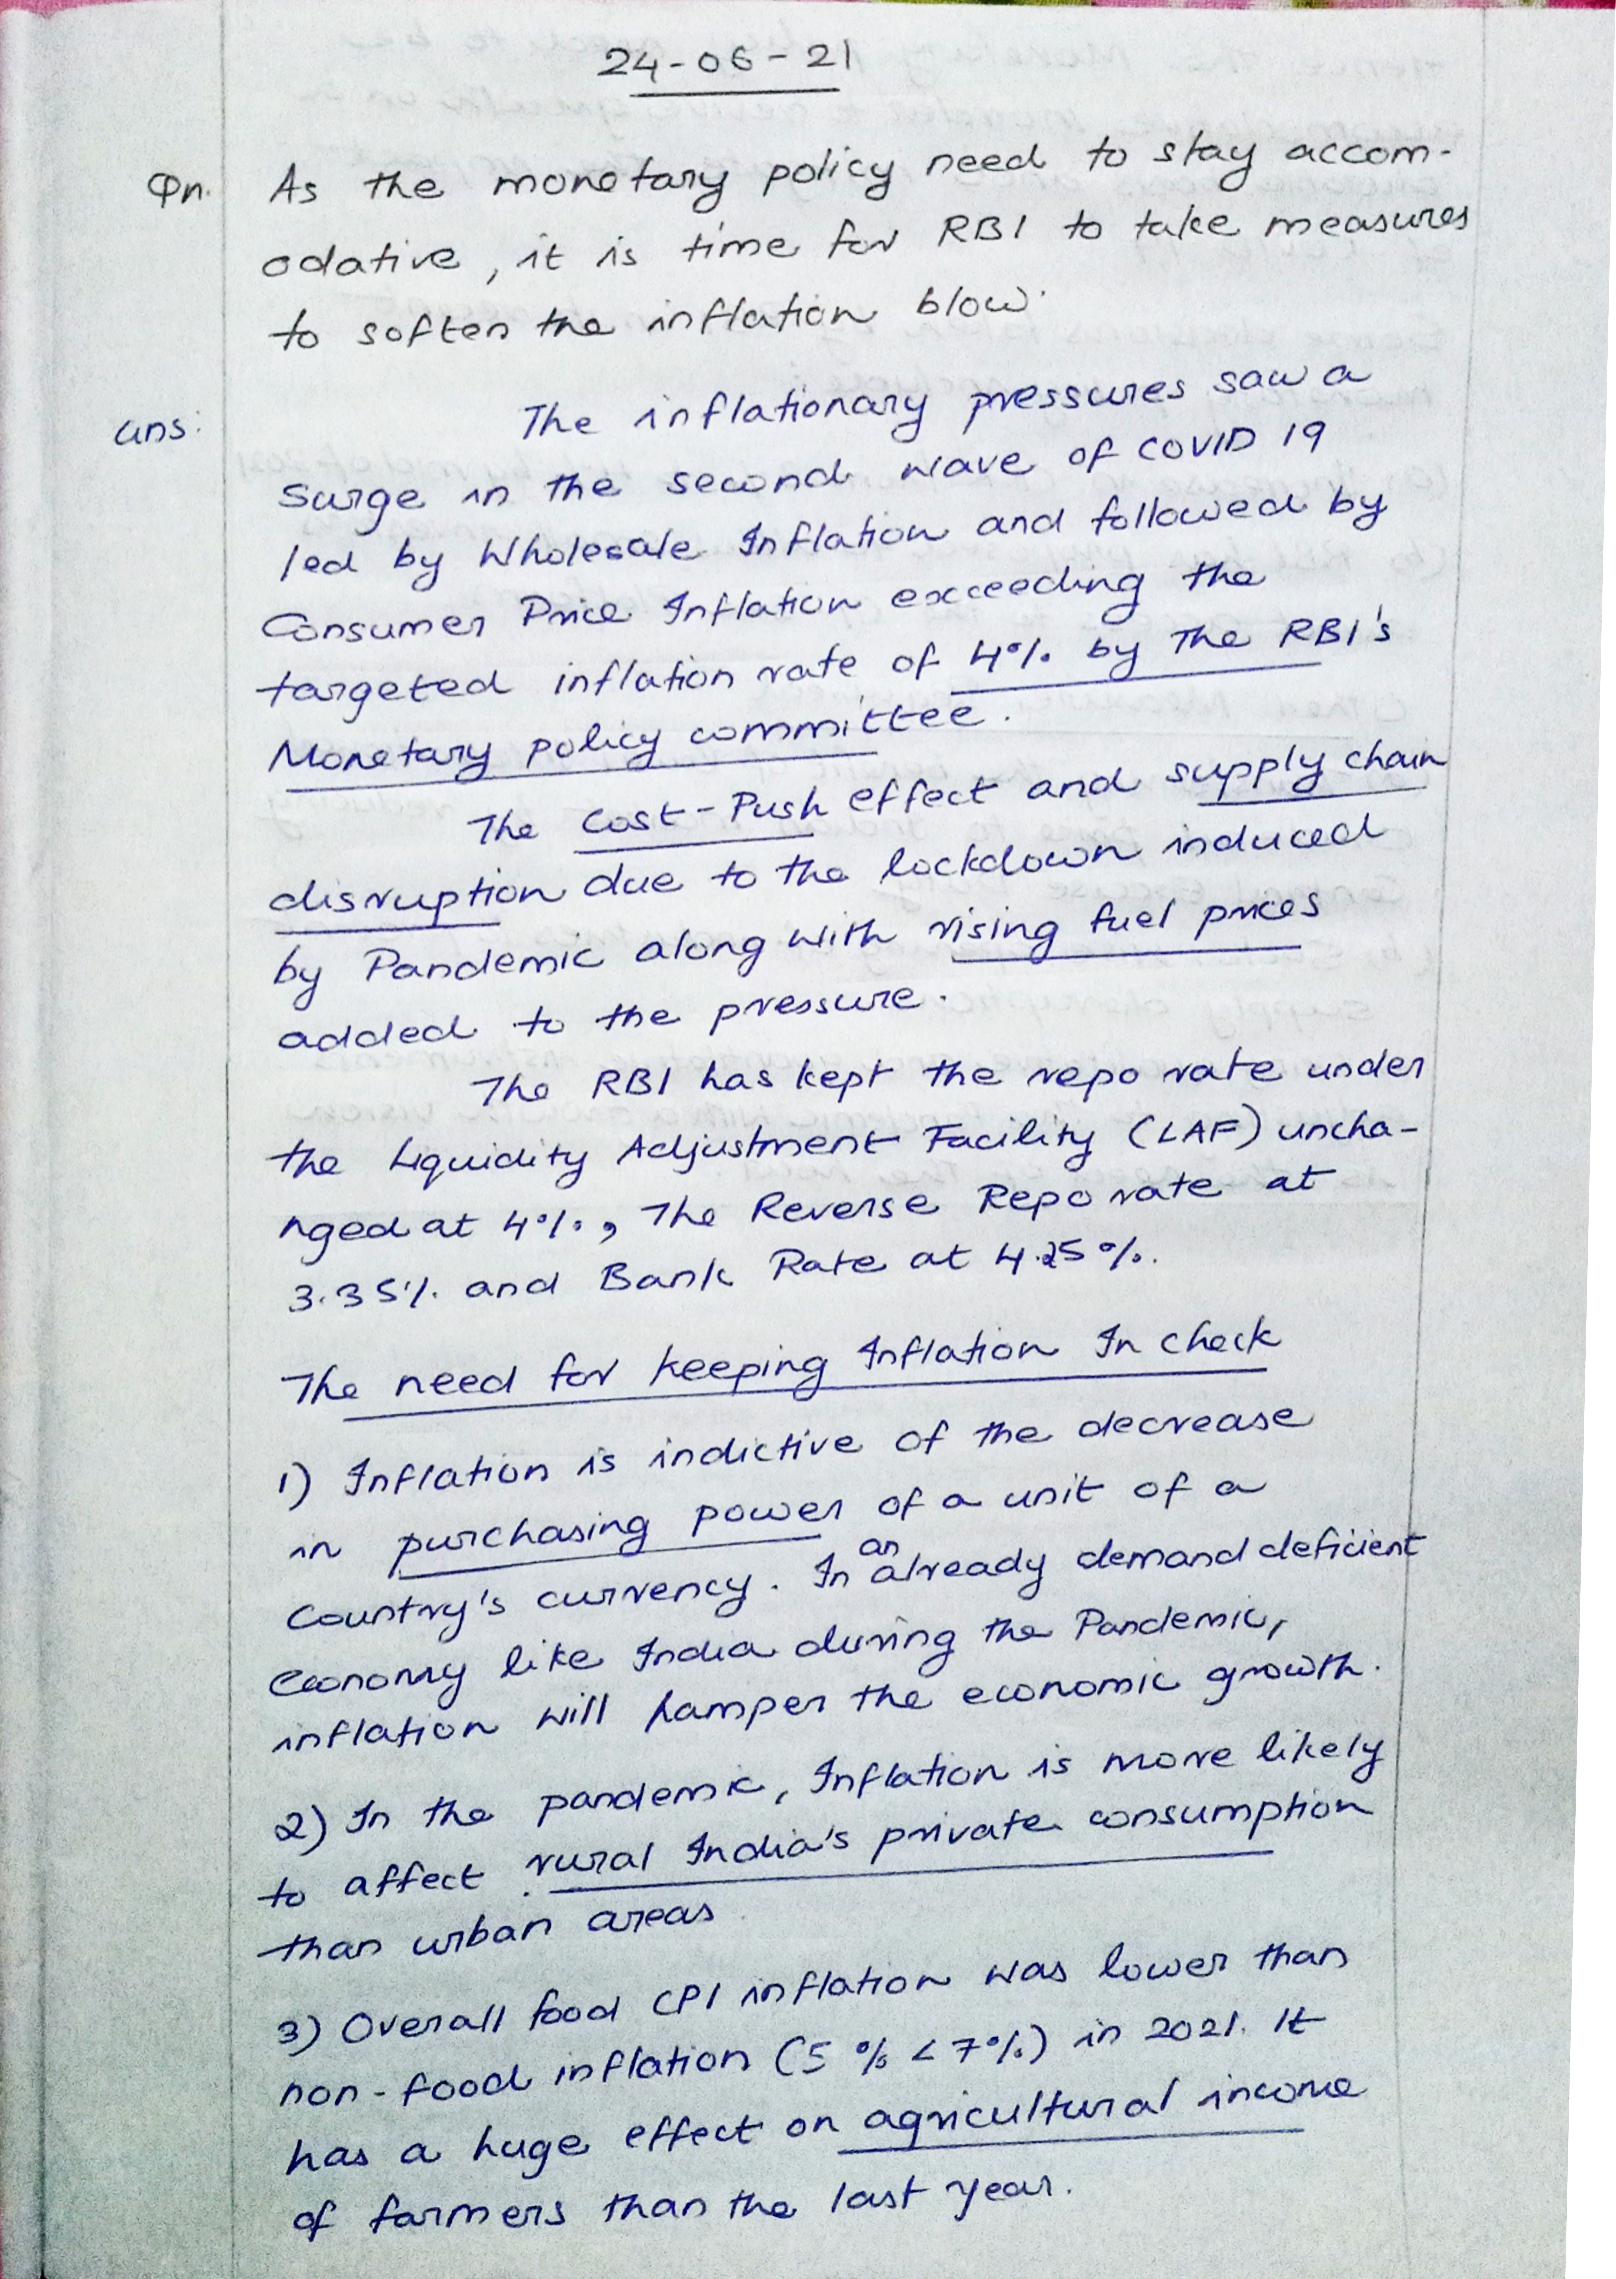 24-06-21
Qn. As the monetary policy need to stay accom-
odative, it is time for RBI to take measures
to soften the inflation blow.
Ans: The inflationary pressures saw a
surge in the second wave of COVID 19
led by Wholesale Inflation and followed by
Consumer Price Inflation exceeding the
targeted inflation rate of 4% by The RBI's
Monetary policy committee.
The Cost-Push effect and supply chain
disruption due to the lockdown induced
by Pandemic along with rising fuel prices
added to the pressure.
The RBI has kept the repo rate under
the Liquidity Adjustment Facility (LAF) uncha-
nged at 4%, The Reverse Repo rate at
3.35% and Bank Rate at 4.25%.
The need for keeping Inflation In check
1) Inflation is indictive of the decrease
in purchasing power of a unit of a
Country's currency. In an already demand deficient
Economy like India during the Pandemic,
inflation will hamper the economic growth.
2) In the pandemic, Inflation is more likely
to affect rural India's private consumption
than urban areas
3) Overall food CPI inflation was lower than
non-food inflation (5% < 7%) in 2021. It
has a huge effect on agricultural income
of farmers than the last year.